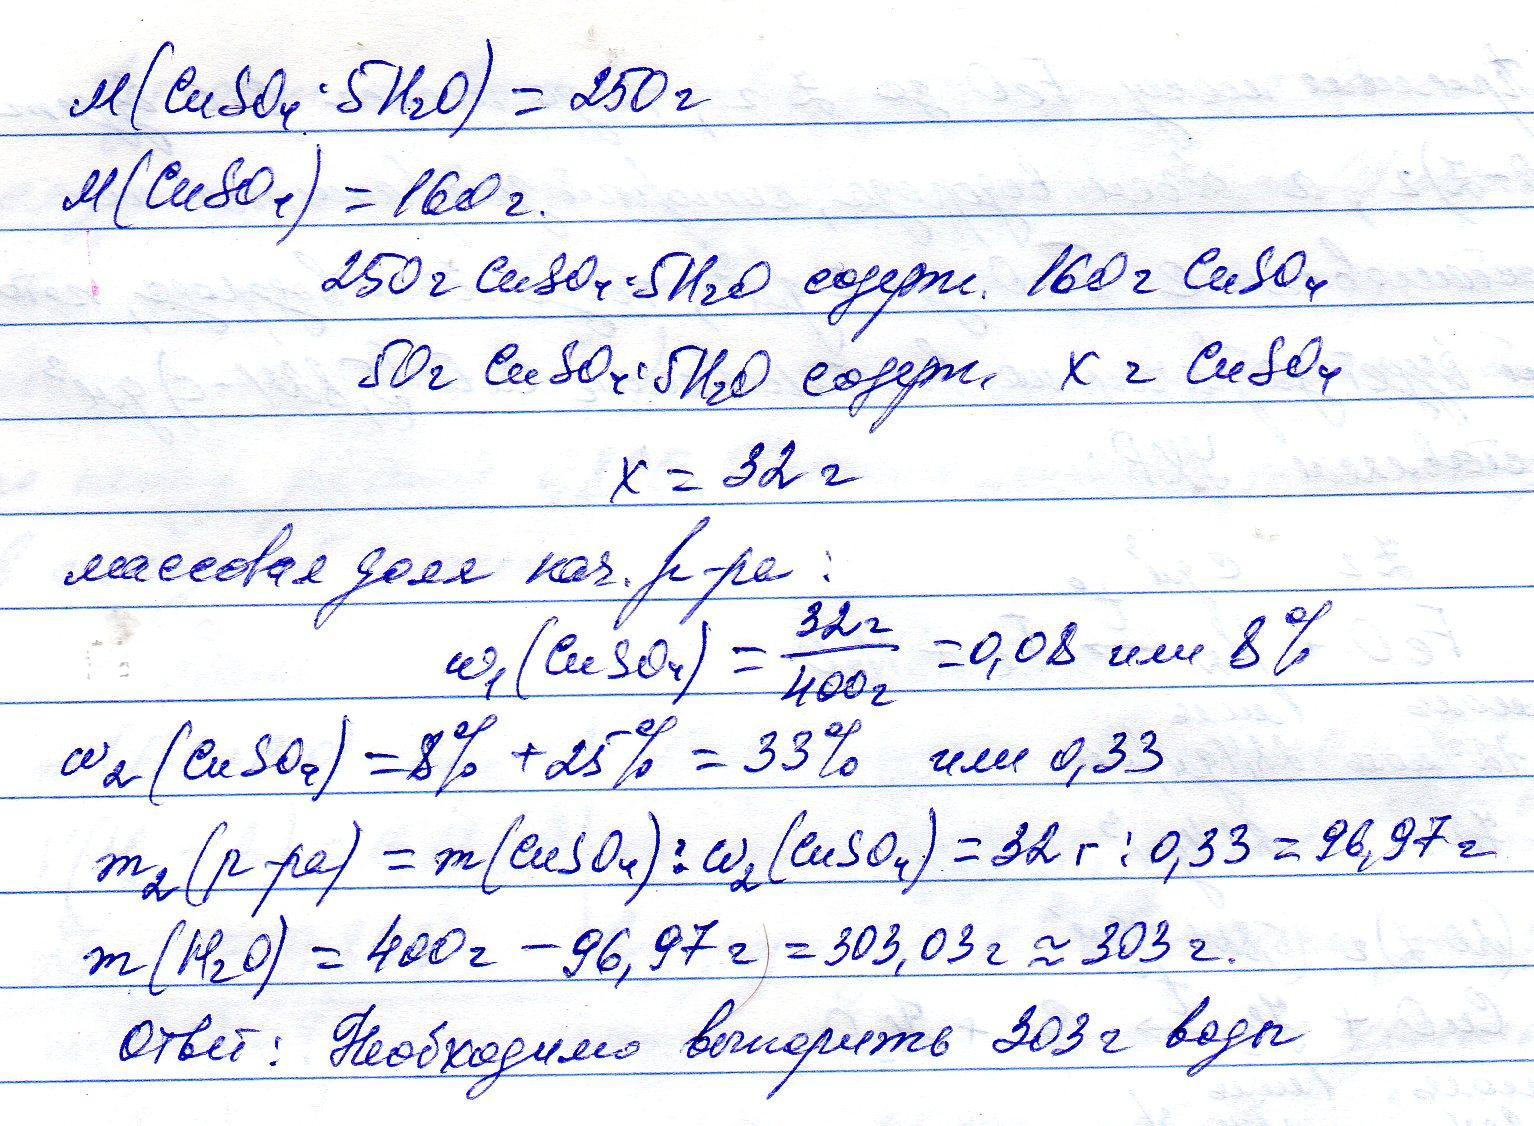 M(CuSO₄·5H₂O) = 250г
M(CuSO₄) = 160г.
250г CuSO₄·5H₂O содерж. 160г CuSO₄
50г CuSO₄·5H₂O содерж. x г CuSO₄
x = 32 г
массовая доля нач. р-ра:
w₁(CuSO₄) = 32г/400г = 0,08 или 8%
w₂(CuSO₄) = 8% + 25% = 33% или 0,33
m₂(р-ра) = m(CuSO₄) : w₂(CuSO₄) = 32 г : 0,33 = 96,97 г
m(H₂O) = 400г - 96,97 г = 303,03г ≈ 303 г.
Ответ: Необходимо выпарить 303 г воды